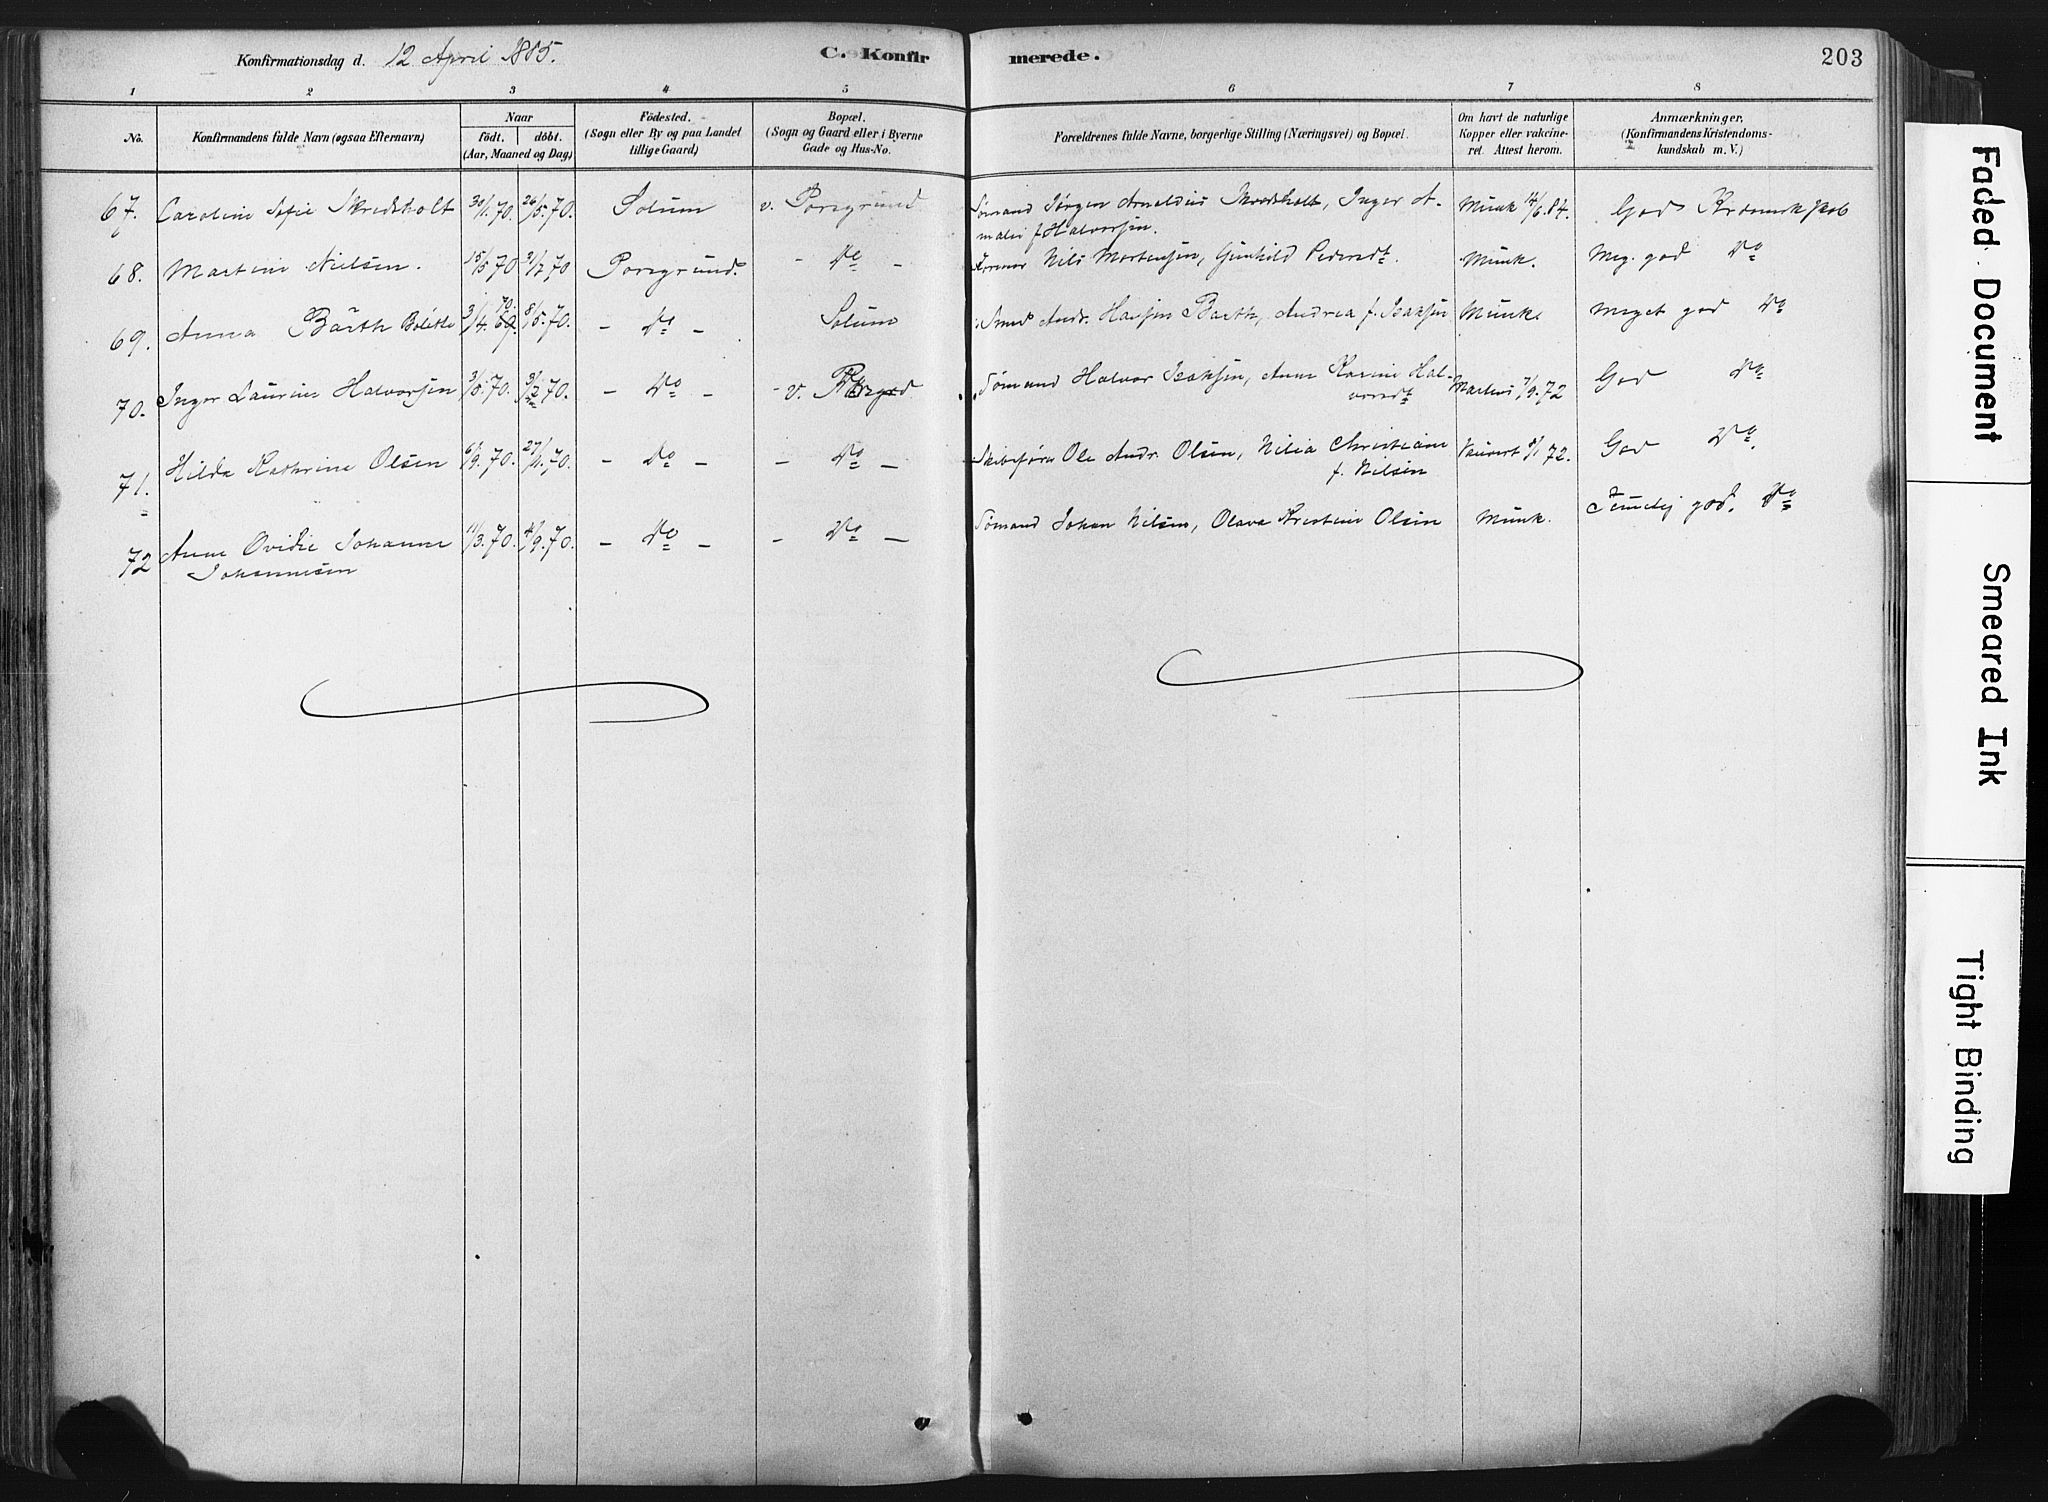 Konfirmationsdag d. 12 April 1885.
C. Konfirmerede.
203
1 2 3 4 5 6 7 8
No.
Konfirmandens fulde Navn (ogsaa Efternavn)
Naar
födt. döbt.
(Aar, Maaned og Dag)
Födested.
(Sogn eller By og paa Landet
tillige Gaard)
Bopæl.
(Sogn og Gaard eller i Byerne
Gade og Hus-No.
Forældrenes fulde Navne, borgerlige Stilling (Næringsvei) og Bopæl.
Om havt de naturlige
Kopper eller vakcine-
ret. Attest herom.
Anmærkninger,
(Konfirmandens Kristendoms-
kundskab m. V.)
67. Caroline Sofie Skredsholt 30/1.70. 26/5.70. Solum v. Porsgrund Sömand Jørgen Arneldius Skredsholt, Inger A- Munk 14/6.84. God Kristendskskab
malie f. Halvorsen.
68. Martine Nielsen. 15/5 70 31/7 70 Porsgrund. - Do - Nils Mortensen, Gunhild Pedersdt. Munk. Meg. god Do
69. Anna Barth Bolette 3/4.69. 70. 8/5.70. - Do - Solum Smed Andr. Hansen Barth, Andrea f. Isaksen Munk. Meget god Do
70. Inger Laurine Halvorsen 3/5.70. 3/7.70. - Do - - v. Porsgrd Sömand Halvor Isaksen, Anne Karine Hal- 7/9.72 God Do
vorsdt
71. Hilda Kathrine Olsen 6/9.70. 27/11.70. - Do - - Do - Skibsförer Ole Andr. Olsen, Nilia Christiane 8/1 72. God Do.
f. Nilsen
72 Anne Ovidie Johanne 11/3.70. 4/9.70. - Do - - Do - Sömand Johan Nilsen, Olava Kristine Olsen Munk. Temmelig god. Do
Johannesen
Faded Document
Smeared Ink
Tight Binding